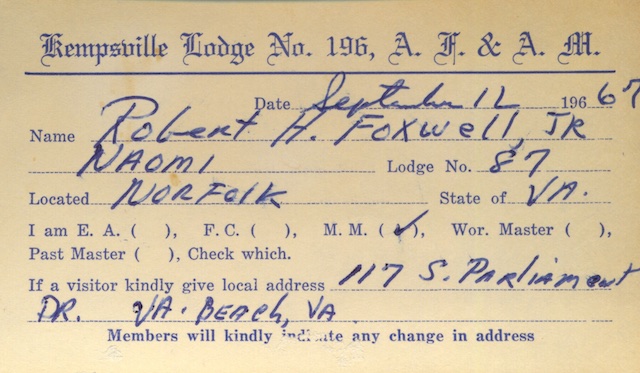 Kempsville Lodge No. 196, A. F. & A. M.
Date September 12 196 67
Name Robert H. Foxwell, JR
NAOMI Lodge No. 87
Located NORFOlK State of VA.
I am E. A. ( ), F. C. ( ), M. M. (✓), Wor. Master ( ),
Past Master ( ), Check which.
If a visitor kindly give local address 117 S. PARliAMENT
DR. VA. BEACH, VA
Members will kindly indicate any change in address